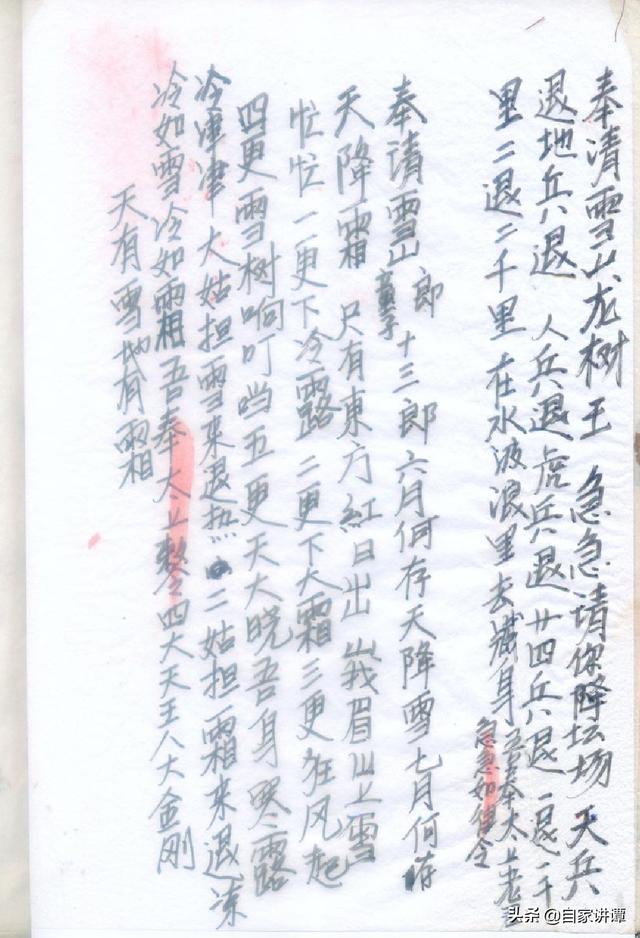 奉清雪山龙树王 急急请你降坛场 天兵
退地兵退 人兵退虎兵退廿四兵退一退一千
里二退二千里 在水波浪里去藏身 吾奉太上老君
急急如律令
奉请雪山郎 十三郎六月何存天降雪七月何存
童子
天降霜 只有東方紅日出 山我眉山上雪
忙忙一更下冷露 二更下大霜三更狂风起
四更雪树响叮当五更天大晓吾身寒露
冷津津大姑担雪来退热 二姑担霜来退冻
冷如雪冷如霜吾奉太上敕令四大天王八大金刚
天有雪地有霜
头条@自家讲谭